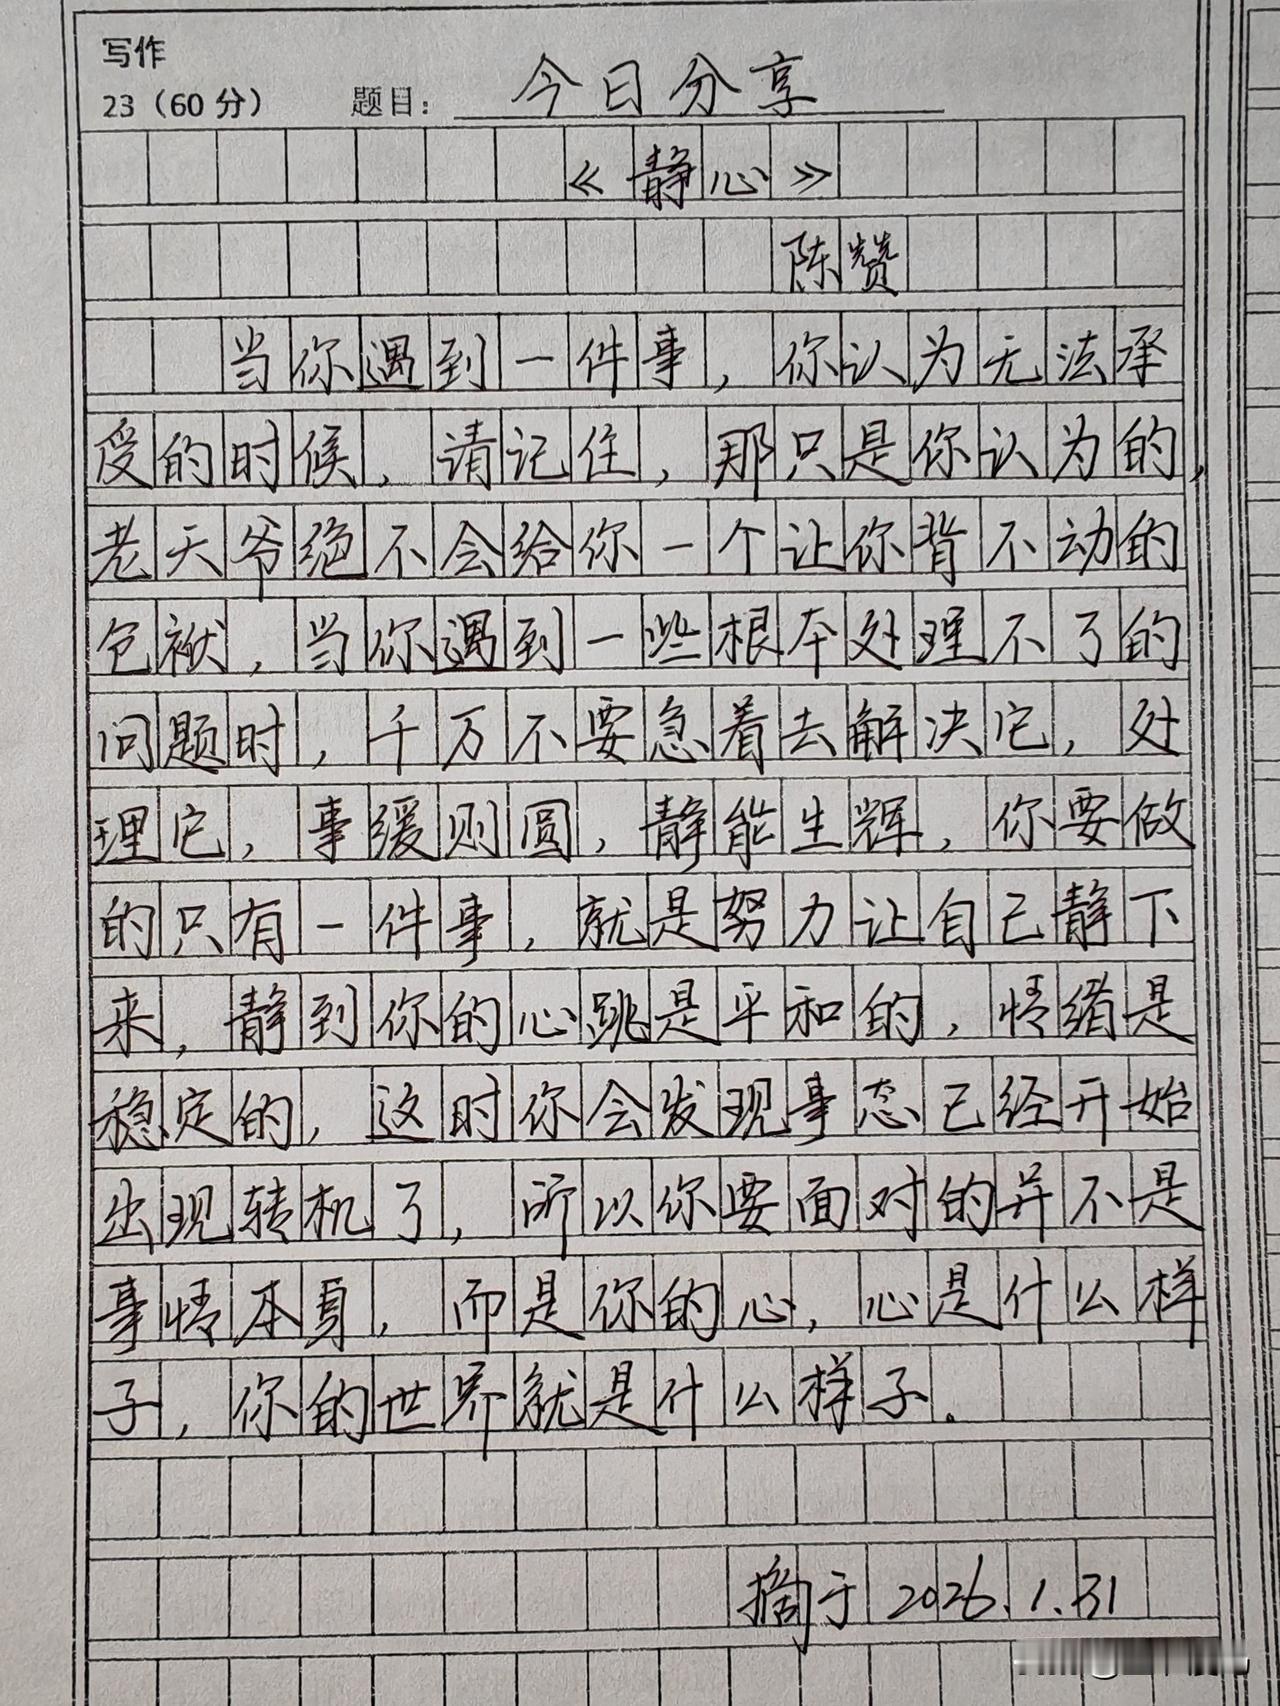 写作
23（60分） 题目：今日分享
《静心》
陈赞
当你遇到一件事，你认为无法承
受的时候，请记住，那只是你认为的，
老天爷绝不会给你一个让你背不动的
包袱，当你遇到一些根本处理不了的
问题时，千万不要急着去解决它，处
理它，事缓则圆，静能生辉，你要做
的只有一件事，就是努力让自己静下
来，静到你的心跳是平和的，情绪是
稳定的，这时你会发现事态已经开始
出现转机了，所以你要面对的并不是
事情本身，而是你的心，心是什么样
子，你的世界就是什么样子。
摘于2026.1.31